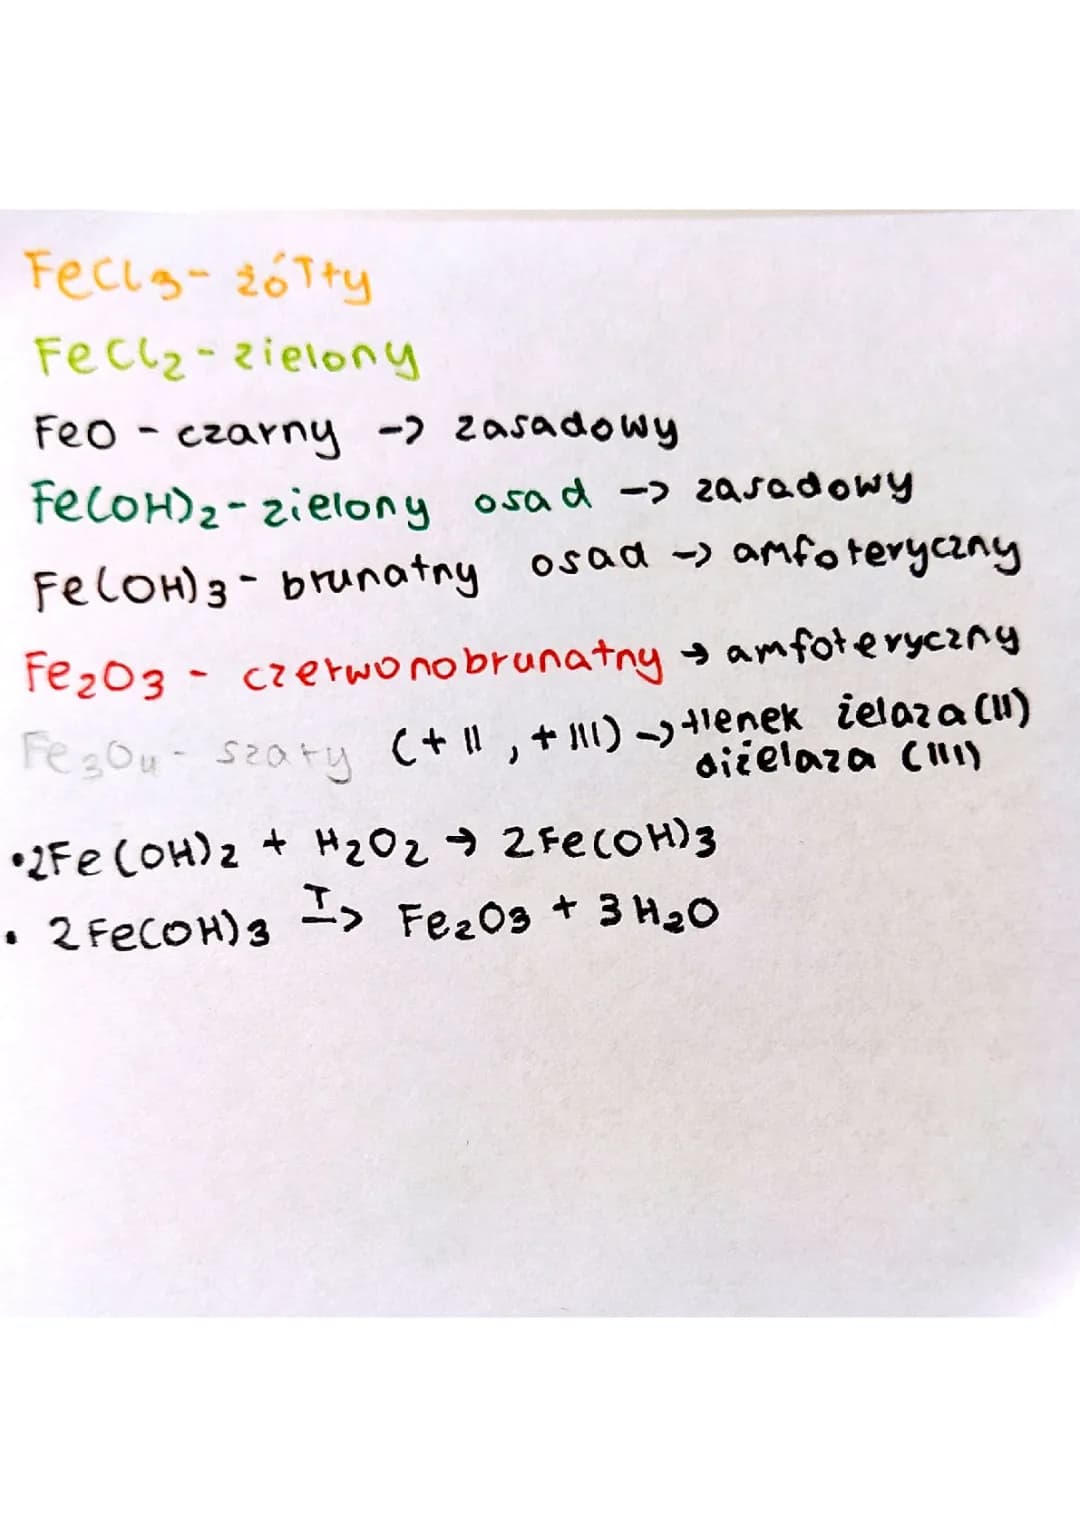 FeCl3 - żółty
FeCl2 - zielony
FeO - czarny -> zasadowy
Fe(OH)2 - zielony osad -> zasadowy
Fe(OH)3 - brunatny osad -> amfoteryczny
Fe2O3 - czerwonobrunatny → amfoteryczny
Fe3O4 - szary (+II, +III) -> tlenek żelaza (II)
diżelaza (III)
• 2Fe(OH)2 + H2O2 → 2Fe(OH)3
• 2Fe(OH)3 T-> Fe2O3 + 3H2O